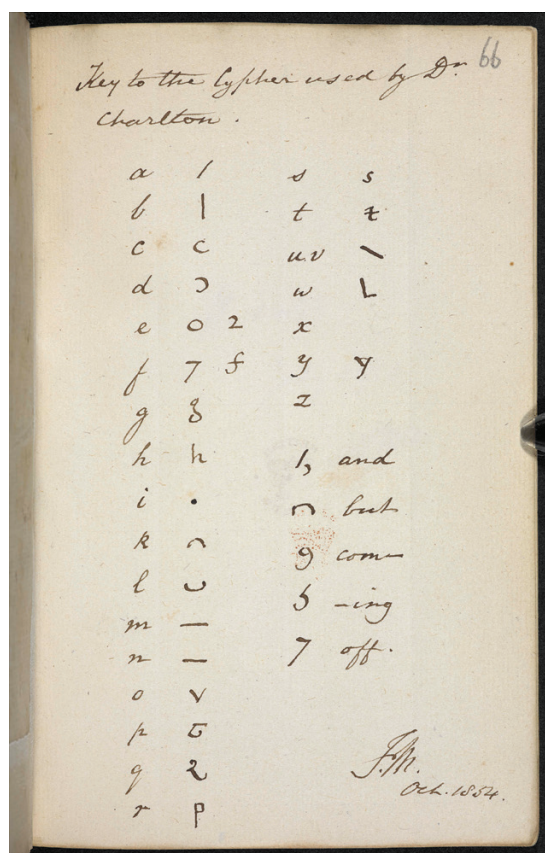 66
Key to the Cypher used by Dr.
Charlton.
a /
b |
c c
d ɔ
e o 2
f 7 f
g
h h
i •
k ⌒
l ◡
m —
n —
o v
p
q 2
r p
s s
t z
u.v \
w L
x
y y
z
1, and
∩ but
9 com—
—ing
7 off.
Oct. 1854.